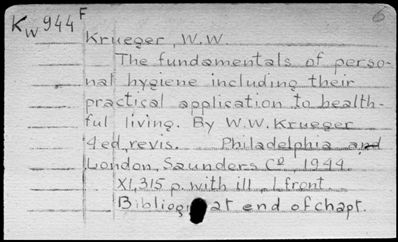 6
Kw 944 F
Krueger, W.W.
The fundamentals of perso-
nal hygiene including their
practical application to health-
ful living. By W.W. Krueger
4ed, revis. Philadelphia and
London, Saunders Cº, 1944.
XI, 315 p. with ill., 1 front.
at end of chapt.